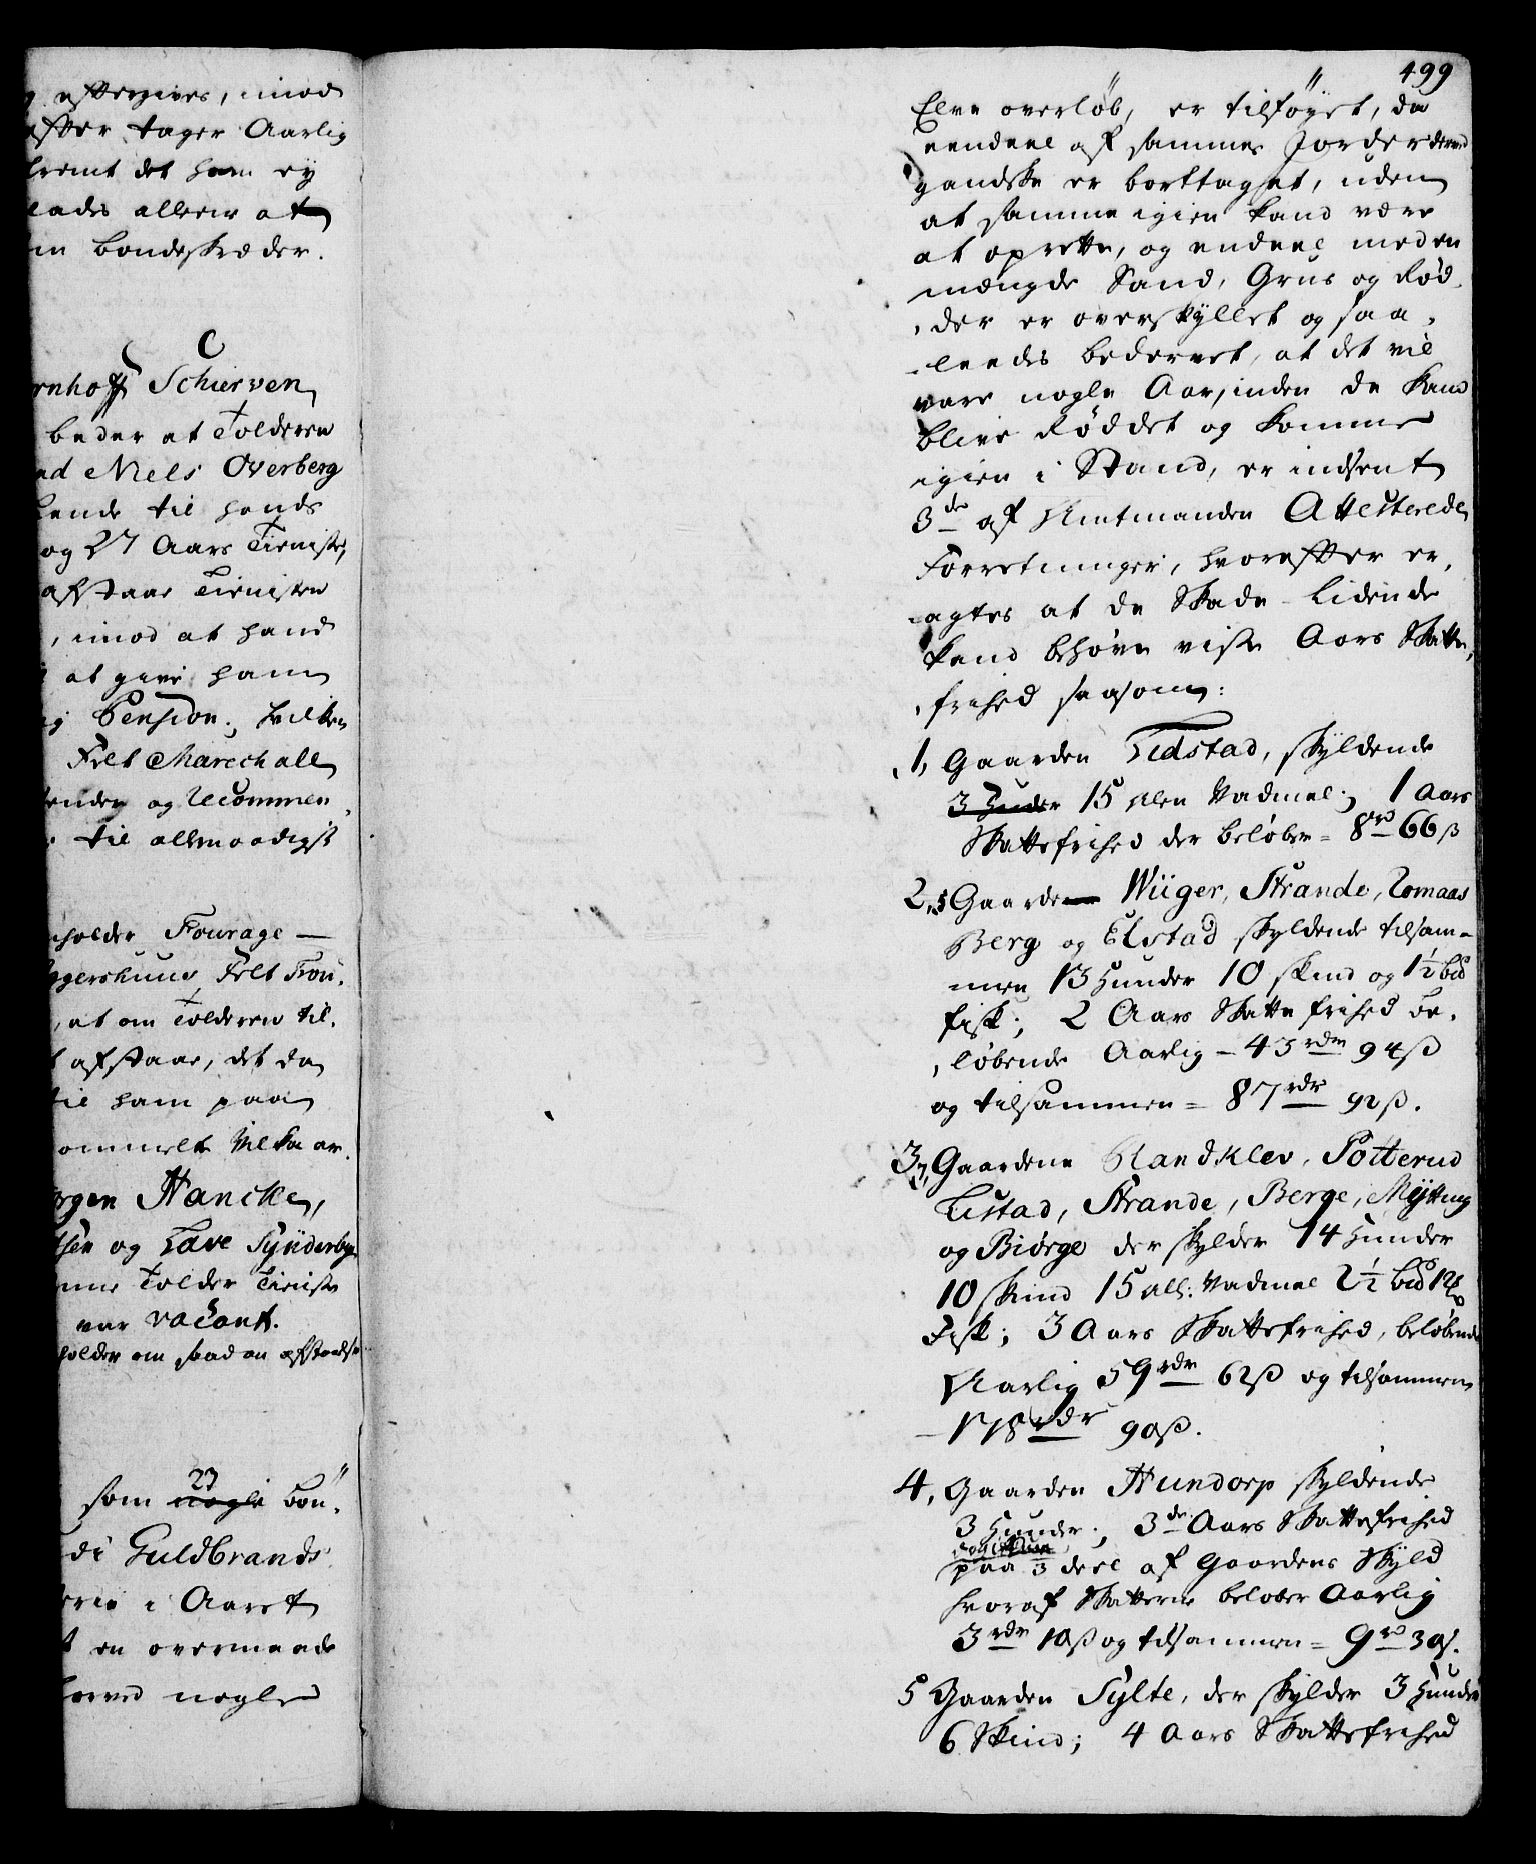 eftergives, imod
efter tager Aarlig
fremt det ham ey
lades alleene at
en bondeskræder.
C
rnhoff Schierven
beder at Tolderen
ad Niels Overberg
hende til hands
og 27 Aars Tieniste,
afstaae Tienisten
, imod at hand
at give ham
g Pension; hvilken
Felt Marechall
enden og Recommen,
til allernaadigst
holder Fourage —
ggershuus Felt Fou,
, at om Tolderen til,
t afstaae, det da
til ham paa
ommelte Vilkaar.
rgen Hancke,
tsen og Lave Synderbye
nne Tolder Tieniste
var vacant.
holder om saadan afstaaelse
som 23 nogle bøn,
di Guldbrands
erie i Aaret
t en overmaade
hvorved nogle
499
Elve overløb, er tilføyet, da
eendeel af sammes Jorder derved
gandske er borttaget, uden
at samme igien kand være
at oprette, og endeel med en
mængde Sand, Gruus og Rød,
, der er overskyllet og saa,
, leedes bedervet, at det vil
vare nogle Aar, inden de kand
blive Røddet og komme
igien i Stand, er indsent
3de af Amtmanden Attesterede
Forretninger, hvorefter er,
, agtes at de Skade-Lidende
kand behøve visse Aars Skatte,
, frihed saasom:
1, Gaarden Lidstad, skyldende
3 Huder 15 Alen Vadmel; 1 Aars
Skattefrihed der beløber = 8rd 66ß
2, 5 Gaarde Wiiger, Strande, Romaas
Berg og Elstad skyldende tilsam-
men 13 Huuder 10 skind og 1½ bd
fisk; 2 Aars Skatte frihed be,
, løbende Aarlig - 43rdr 94ß
og tilsammen = 87rdr 92ß.
3, 7, Gaardene Randklev, Potterud
Listad, Strande, Berge, Mytting
og Biørge der skylder 14 Huuder
10 skind 15 all: Vadmel 2½ bd 12
Fisk; 3 Aars Skattefrihed, beløbende
Aarlig 59rdr 62ß og tilsammen
- 178rdr 90ß.
4, Gaarden Hundorp skyldende
3 Huuder; 3de Aars Skattefrihed
paa ⅓ deel af Gaardens Skyld
hvoraf Skatterne beløber Aarlig
3rdr 10ß og tilsammen = 9rd 30ß.
5 Gaarden Sylte, der skylder 3 Huuder
6 Skind; 4 Aars Skattefrihed